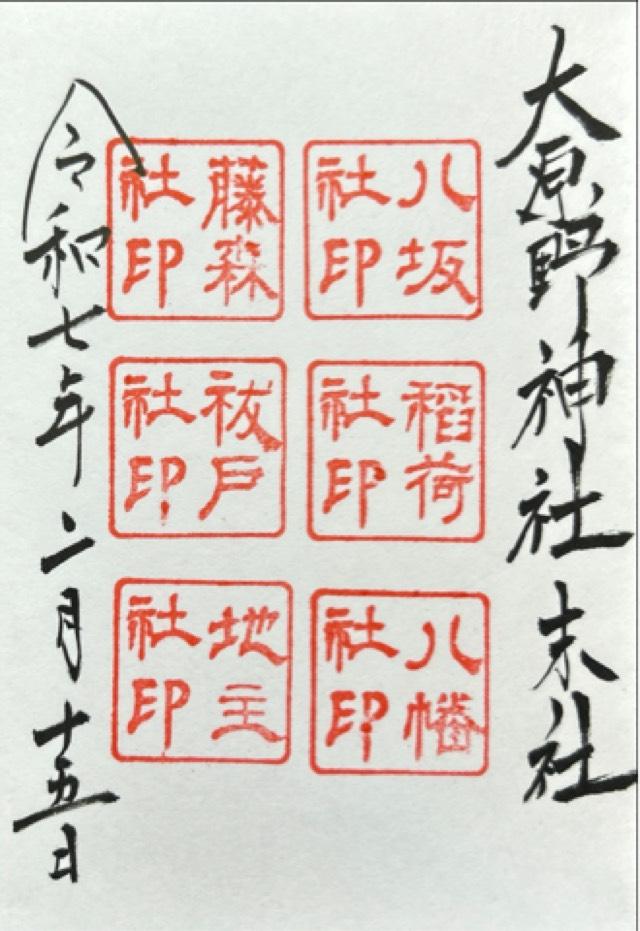 大原野神社末社
八坂社印
稲荷社印
八幡社印
藤森社印
祓戸社印
地主社印
令和七年二月十五日